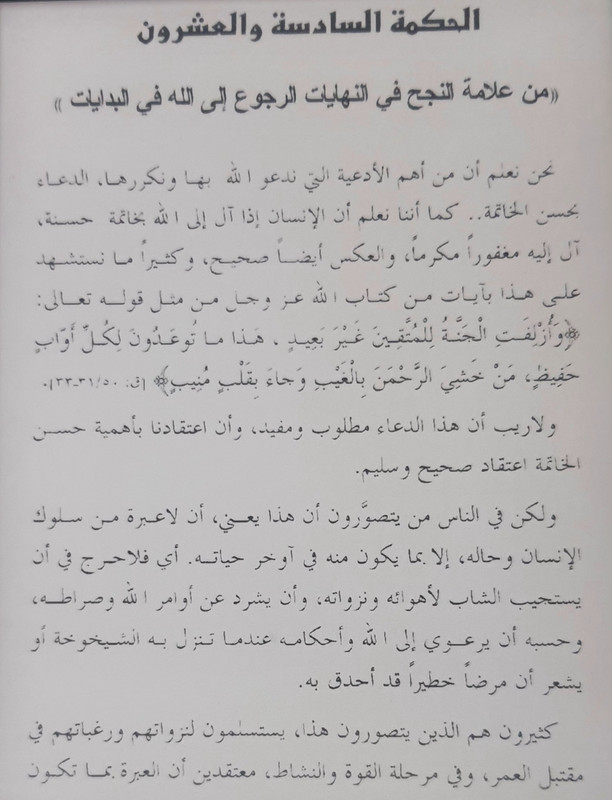 الحكمة السادسة والعشرون
«من علامة النجح في النهايات الرجوع إلى الله في البدايات»
نحن نعلم أن من أهم الأدعية التي ندعو الله بها ونكررها، الدعاء
بحسن الخاتمة.. كما أننا نعلم أن الإنسان إذا آل إلى الله بخاتمة حسنة،
آل إليه مغفوراً مكرماً، والعكس أيضاً صحيح، وكثيراً ما نستشهد
على هذا بآيات من كتاب الله عز وجل من مثل قوله تعالى:
﴿وَأُزْلِفَتِ الْجَنَّةُ لِلْمُتَّقِينَ غَيْرَ بَعِيدٍ ، هَذا ما تُوعَدُونَ لِكُلِّ أَوّابٍ
حَفِيظٍ، مَنْ خَشِيَ الرَّحْمَنَ بِالْغَيْبِ وَجاءَ بِقَلْبٍ مُنِيبٍ﴾ [ق: ٥٠/٣١ـ٣٣].
ولاريب أن هذا الدعاء مطلوب ومفيد، وأن اعتقادنا بأهمية حسن
الخاتمة اعتقاد صحيح وسليم.
ولكن في الناس من يتصوَّرون أن هذا يعني، أن لاعبرة من سلوك
الإنسان وحاله، إلا بما يكون منه في آوخر حياته. أي فلاحرج في أن
يستجيب الشاب لأهوائه ونزواته، وأن يشرد عن أوامر الله وصراطه،
وحسبه أن يرعوي إلى الله وأحكامه عندما تنزل به الشيخوخة أو
يشعر أن مرضاً خطيراً قد أحدق به.
كثيرون هم الذين يتصورون هذا، يستسلمون لنزواتهم ورغباتهم في
مقتبل العمر، وفي مرحلة القوة والنشاط، معتقدين أن العبرة بما تكون